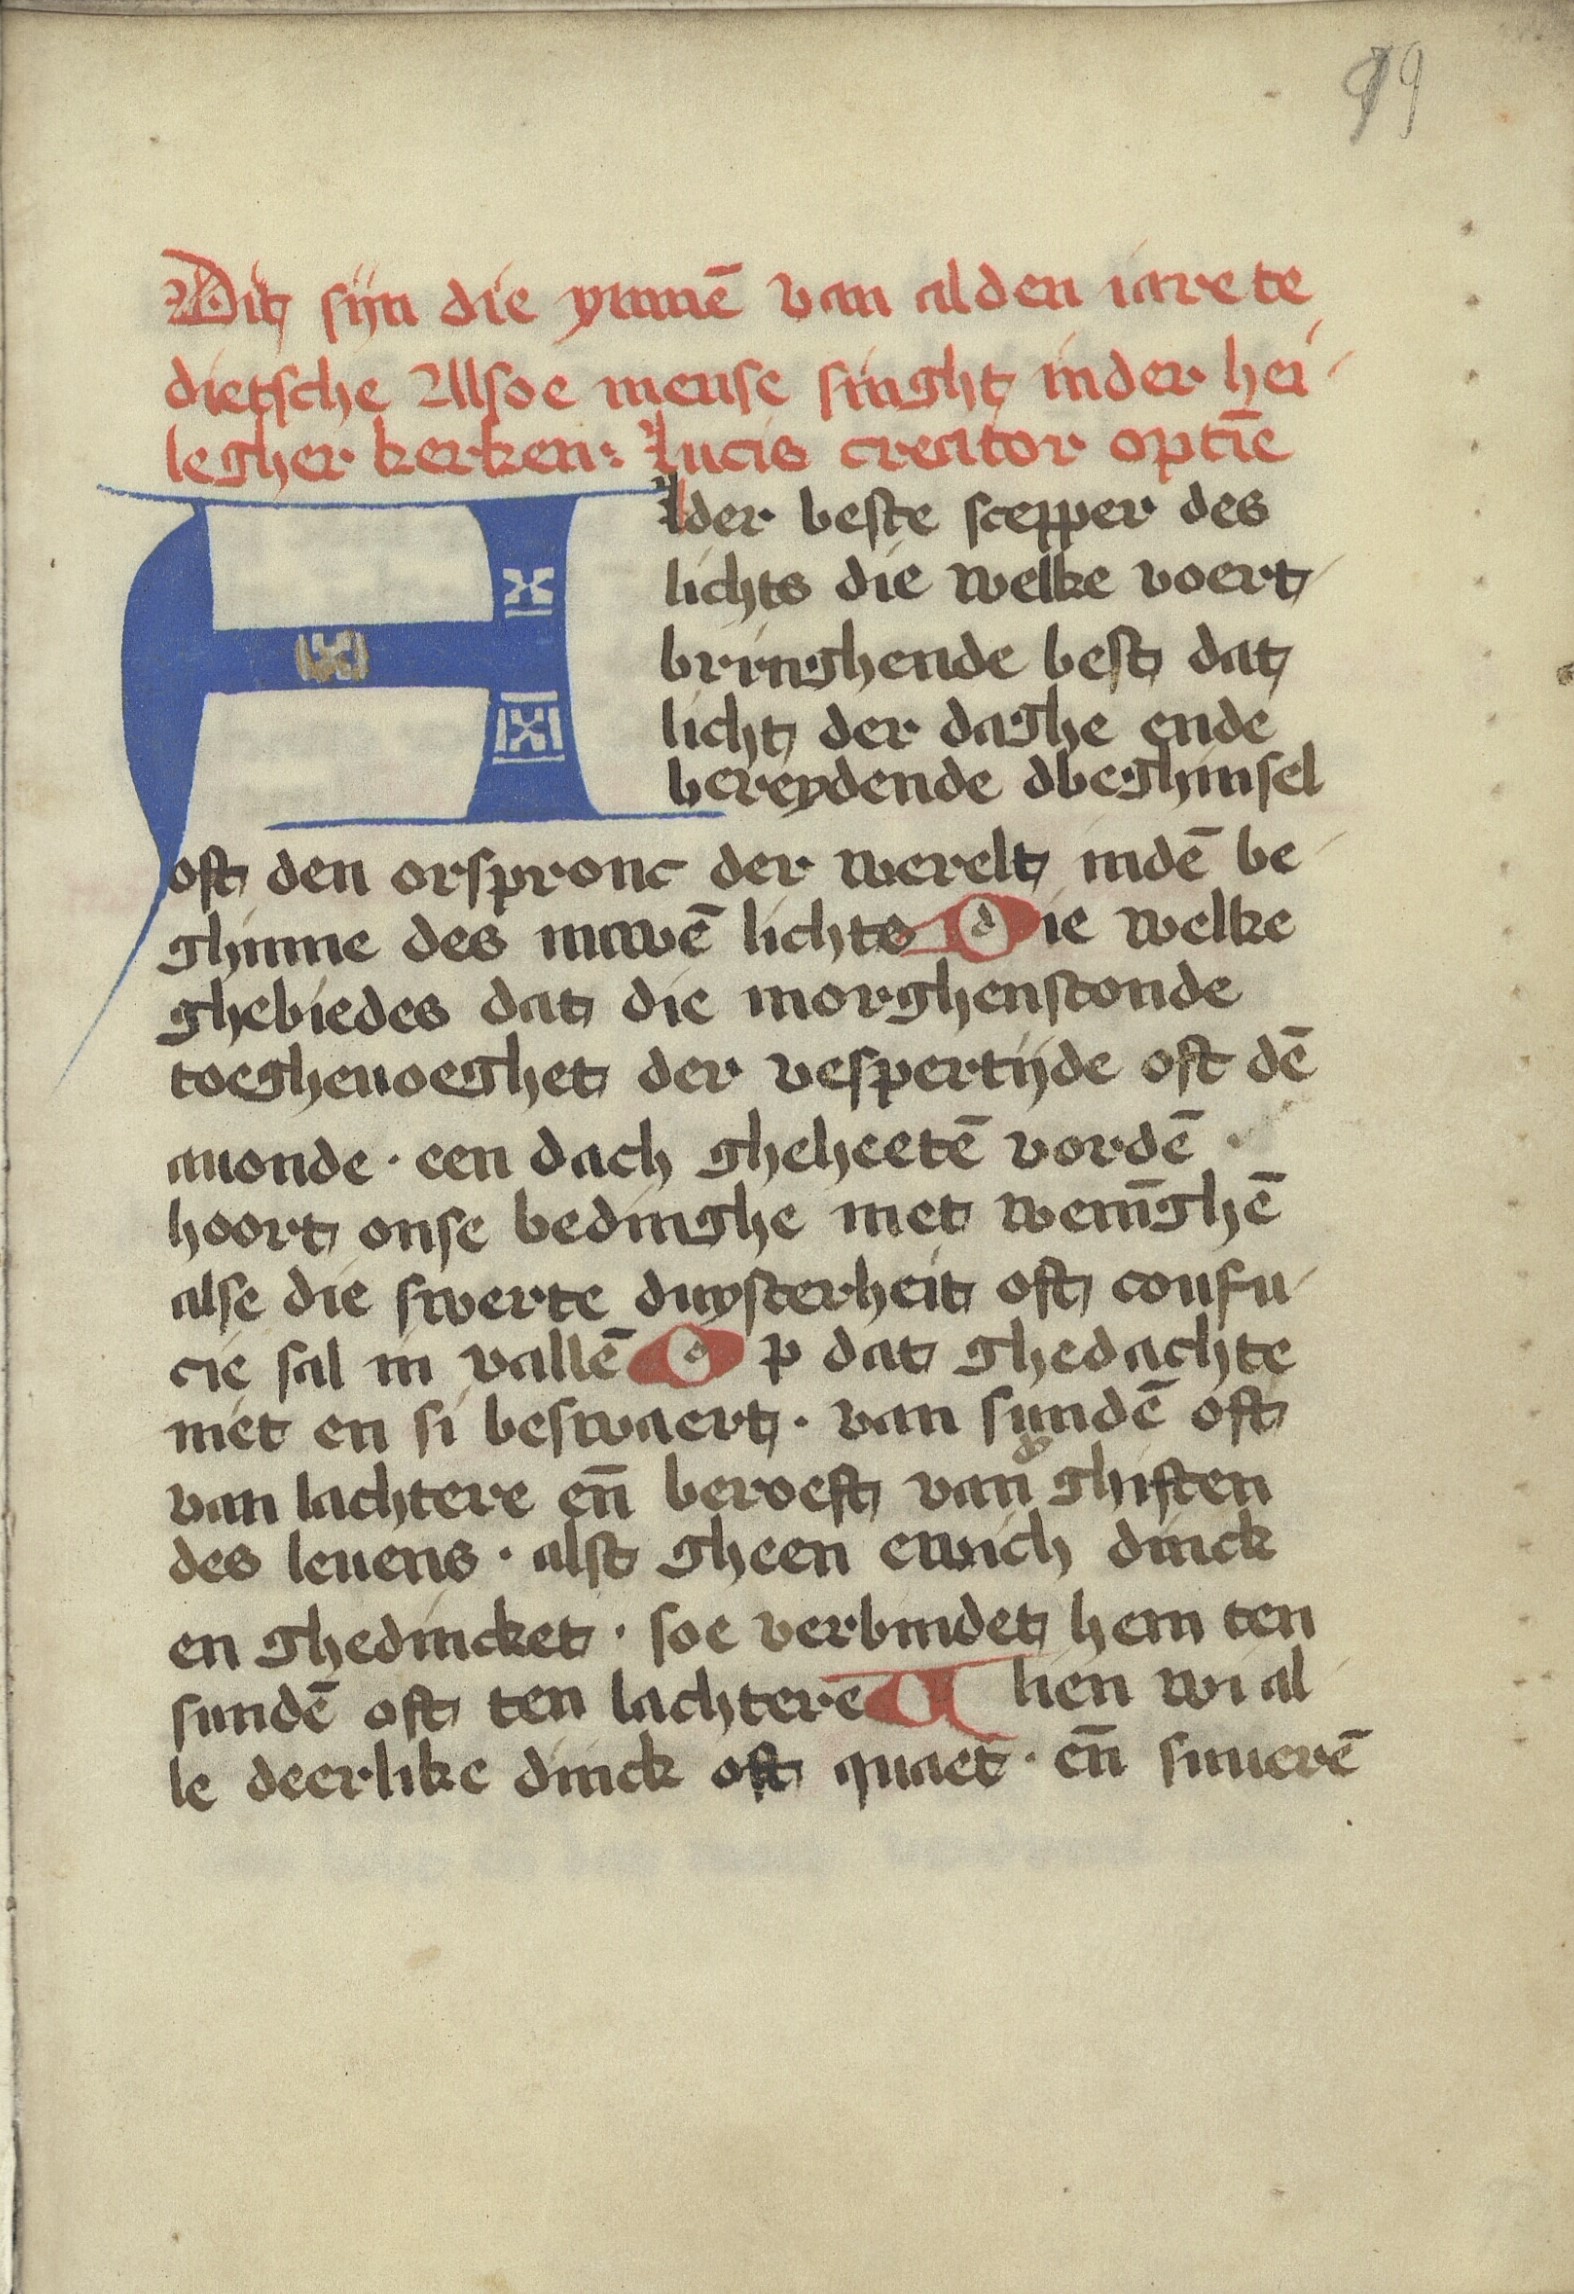 99
Dit sijn die ymnē van alden iare te
dietsche Alsoe mense singht inder hei
legher kerken: Lucis creator optīe
Alder beste scepper des
lichts die welke voert
bringhende best dat
licht der daghe ende
bereydende dbeghinsel
oft den orspronc der werelt indē be
ghinne des nuwē lichts Die welke
ghebiedes dat die morghenstonde
toeghevoeghet der vespertijde oft dē
auonde · een dach gheheetē vordē ·
hoort onse bedinghe met wenīghē
alse die swerte duysterheit oft confu
cie sal in vallē Op dat ghedachte
niet en si beswaert · van sundē oft
van lachtere en̄ beroeft van ghiften
des leuens · alst gheen ewich dinck
en ghedincket · soe verbindet hem ten
sundē oft ten lachtere Alien wi al
le deerlike dinck oft quaet · en̄ suuerē